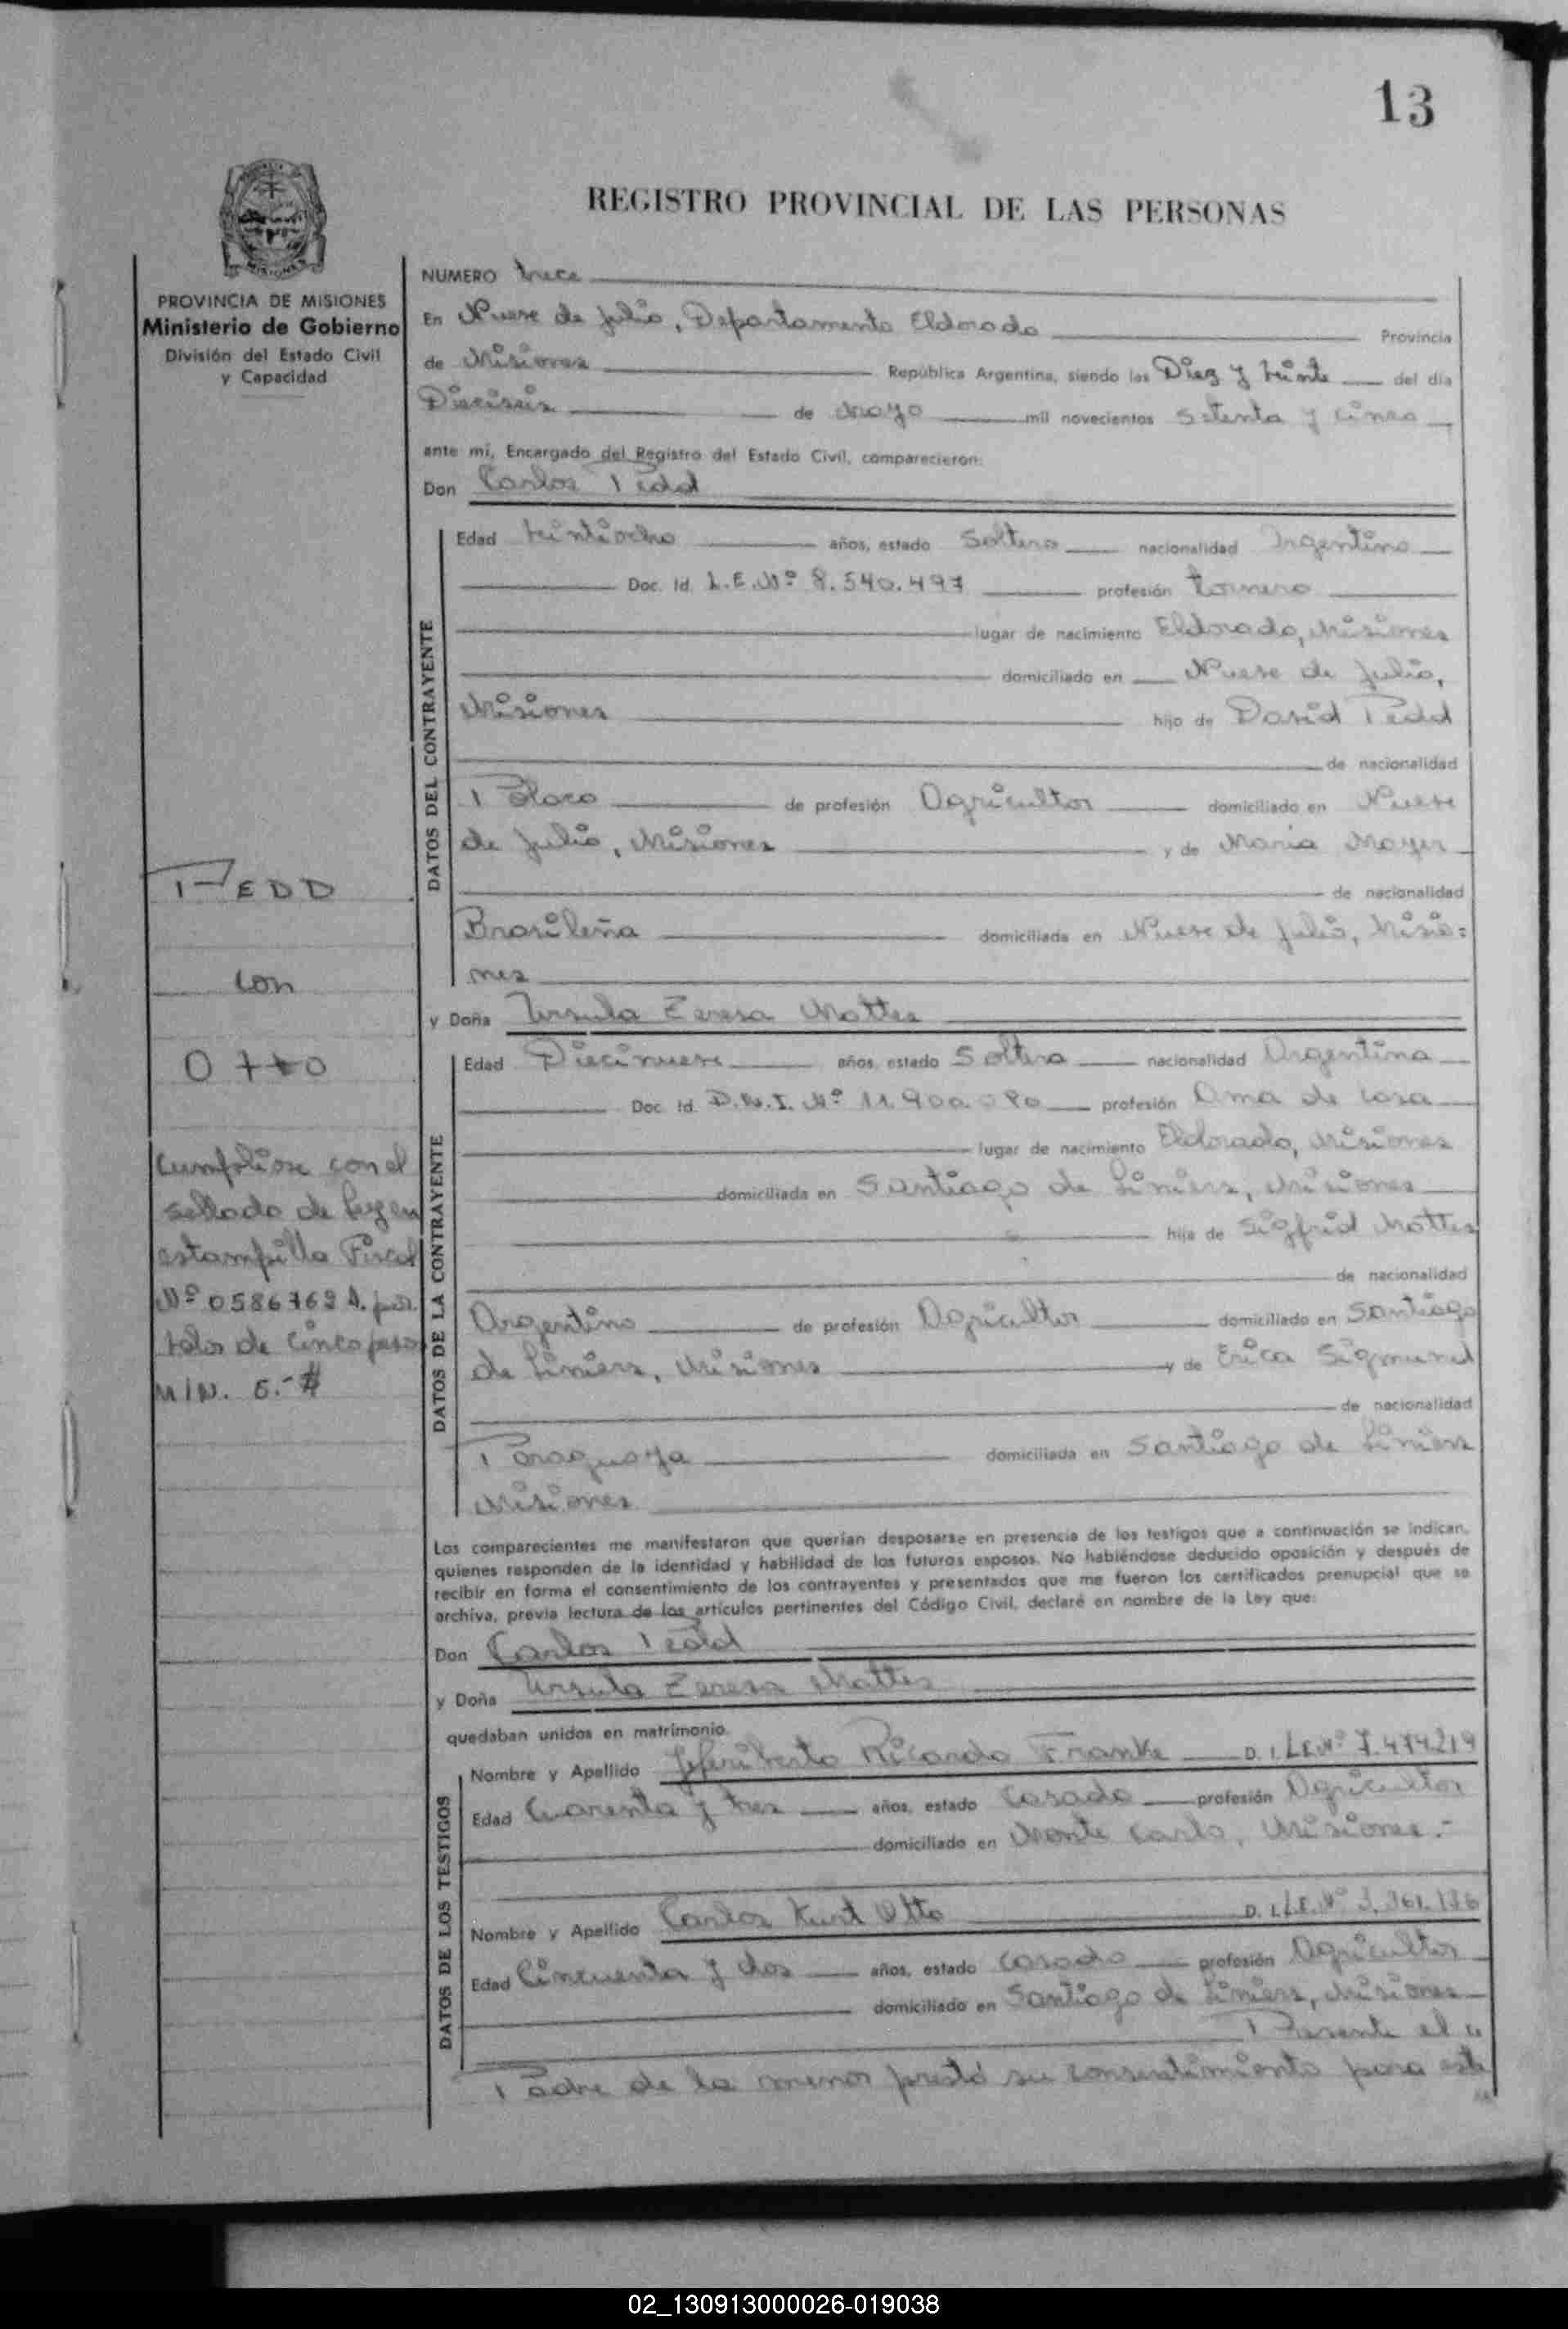 13
REGISTRO PROVINCIAL DE LAS PERSONAS
PROVINCIA DE MISIONES
Ministerio de Gobierno
División del Estado Civil
y Capacidad
NUMERO trece
En Nueve de Julio, Departamento Eldorado Provincia
de Misiones República Argentina, siendo las Diez y treinta del día
Dieciseis de Mayo mil novecientos setenta y cinco
ante mi, Encargado del Registro del Estado Civil, comparecieron:
Don Carlos Pedd
DATOS DEL CONTRAYENTE
Edad treintiocho años, estado Soltero nacionalidad Argentino
Doc. Id. L.E.Nº 8.540.497 profesión tornero
lugar de nacimiento Eldorado, Misiones
domiciliado en Nueve de Julio,
Misiones hijo de David Pedd
de nacionalidad
Polaco de profesión Agricultor domiciliado en Nueve
de Julio, Misiones y de Maria Mayer
de nacionalidad
Brasileña domiciliada en Nueve de Julio, Misio=
nes
y Doña Ursula Teresa Mattes
DATOS DE LA CONTRAYENTE
Edad Diecinueve años, estado Soltera nacionalidad Argentina
Doc. Id. D.N.I. Nº 11.900.090 profesión Ama de casa
lugar de nacimiento Eldorado, Misiones
domiciliada en Santiago de Liniers, Misiones
hija de Sigfrid Mattes
de nacionalidad
Argentino de profesión Agricultor domiciliado en Santiago
de Liniers, Misiones y de Erica Sigmund
de nacionalidad
Paraguaya domiciliada en Santiago de Liniers
Misiones
PEDD
con
Otto
Cumpliose con el
sellado de Ley en
estampilla Fiscal
Nº 0586769 A. por
valor de Cinco pesos
M/N. 5.-#
Los comparecientes me manifestaron que querían desposarse en presencia de los testigos que a continuación se indican,
quienes responden de la identidad y habilidad de los futuros esposos. No habiéndose deducido oposición y después de
recibir en forma el consentimiento de los contrayentes y presentados que me fueron los certificados prenupcial que se
archiva, previa lectura de los artículos pertinentes del Código Civil, declaré en nombre de la Ley que:
Don Carlos Pedd
y Doña Ursula Teresa Mattes
quedaban unidos en matrimonio.
DATOS DE LOS TESTIGOS
Nombre y Apellido Ricardo Franke D. I. L.E.Nº 7.474219
Edad Cuarenta y tres años, estado Casado profesión Agricultor
domiciliado en Monte Carlo, Misiones.-
Nombre y Apellido Carlos Kurt Otto D. I. L.E.Nº
Edad Cincuenta y dos años, estado Casado profesión Agricultor
domiciliado en Santiago de Liniers, Misiones
Presente el
Padre de la menor prestó su consentimiento para este
02_130913000026-019038